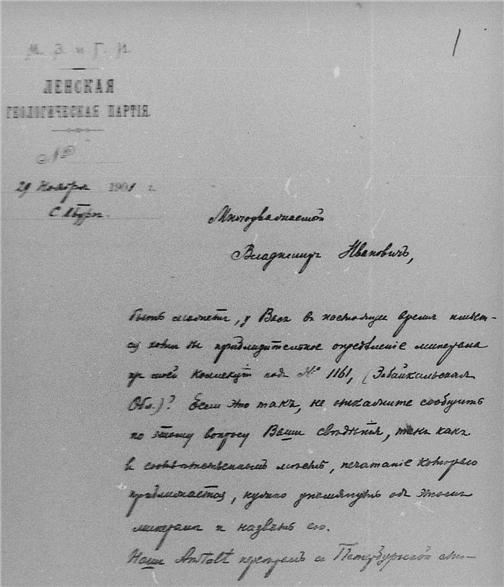 М. З. и Г. И.
ЛЕНСКАЯ
ГЕОЛОГИЧЕСКАЯ ПАРТІЯ.
№
29 Ноября 1901 г.
С.Пбургъ.
1
Многоуважаемый
Владимиръ Ивановичъ,
быть можетъ, у Васъ въ настоящее время имѣет-
ся хотя бы приблизительное опредѣленіе минерала
моей коллекціи подъ № 1161, (Забайкальская
Обл.)? Если это такъ, не откажите сообщить
по этому вопросу Ваши свѣдѣнія, такъ какъ
въ соотвѣтственномъ мѣстѣ, печатаніе котораго
приближается, нужно упомянуть объ этомъ
минералѣ и назвать его.
Нашъ съ Петербургской